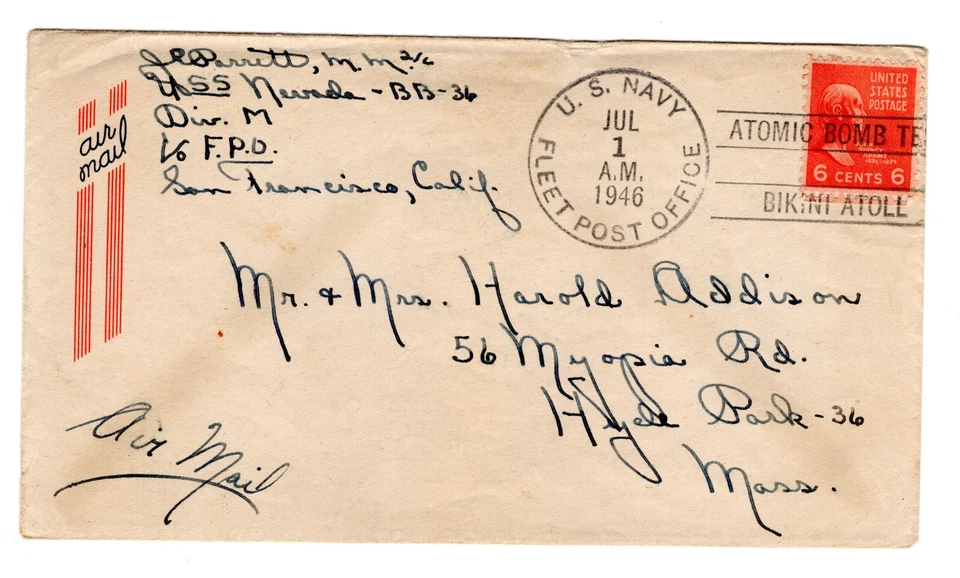 J C Parrett, M.M. 2/c
USS Nevada - BB-36
Div. M
c/o F.P.O.
San Francisco, Calif.
air
mail
U. S. NAVY
JUL
1
A.M.
1946
FLEET POST OFFICE
ATOMIC BOMB TE
BIKINI ATOLL
UNITED
STATES
POSTAGE
QUINCY
ADAMS
6 CENTS 6
Mr. & Mrs. Harold Addison
56 Myopia Rd.
Hyde Park - 36
Mass.
Air Mail